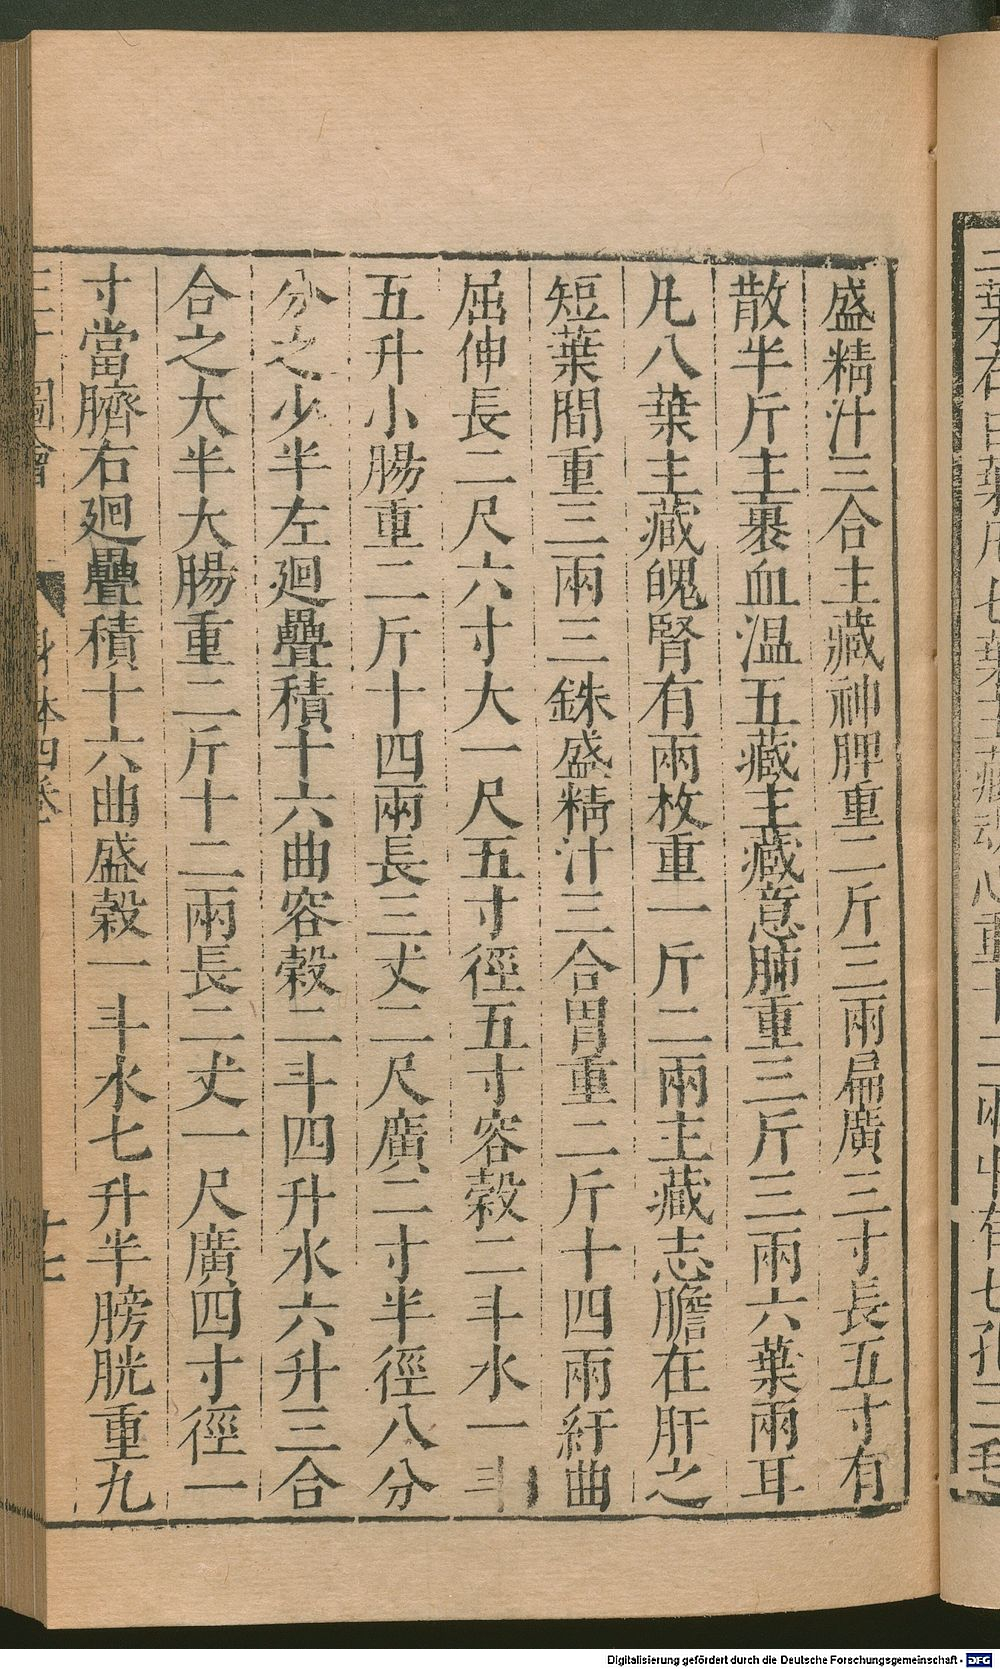 盛精汁三合主藏神脾重二斤三兩扁廣三寸長五寸有
散半斤主裹血温五藏主藏意肺重三斤三兩六葉兩耳
凡八葉主藏魄腎有兩枚重一斤二兩主藏志膽在肝之
短葉間重三兩三銖盛精汁三合胃重二斤十四兩紆曲
屈伸長二尺六寸大一尺五寸徑五寸容穀二斗水一斗
五升小腸重二斤十四兩長三丈二尺廣二寸半徑八分
分之少半左廻疊積十六曲容穀二斗四升水六升三合
合之大半大腸重二斤十二兩長二丈一尺廣四寸徑一
寸當臍右廻疊積十六曲盛穀一斗水七升半膀胱重九
三才圖會 身体四卷 十七
Digitalisierung gefördert durch die Deutsche Forschungsgemeinschaft - DFG